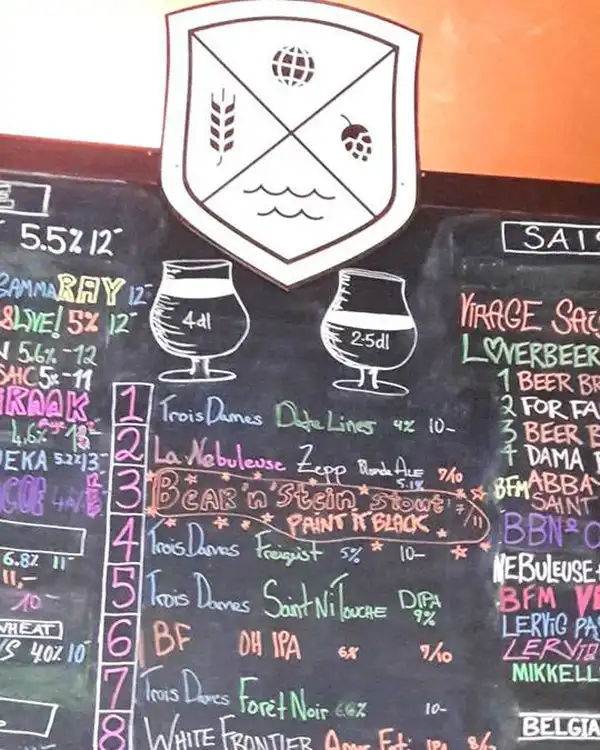 5.5% 12-
GAMMA RAY 12-
LIVE! 5% 12-
5.6% -12
SAIC 5% -11
4.6%
5.2% 13-
6.8% 11-
11,-
10-
WHEAT
4.0% 10-
4dl
2.5dl
1 Trois Dames Date Lines 4% 10-
2 La Nebuleuse Zepp Blonde Ale 5.1% 7/10
3 Bear 'n' Stein Stout 7/11
PAINT IT BLACK
4 Trois Dames Freigist 5% 10-
5 Trois Dames Saint Ni Touche DIPA 9%
6 BF OH IPA 6% 7/10
7 Trois Dames Forêt Noir 6.6% 10-
8 WHITE FRONTIER IPA 8/
SAIS
VIRAGE SAI
LOVERBEER
1 BEER BR
2 FOR FA
3 BEER B
4 DAMA
BFM ABBA
SAINT
BBNº
NEBULEUSE
BFM
LERVIG PA
LERVIG
MIKKELL
BELGIA